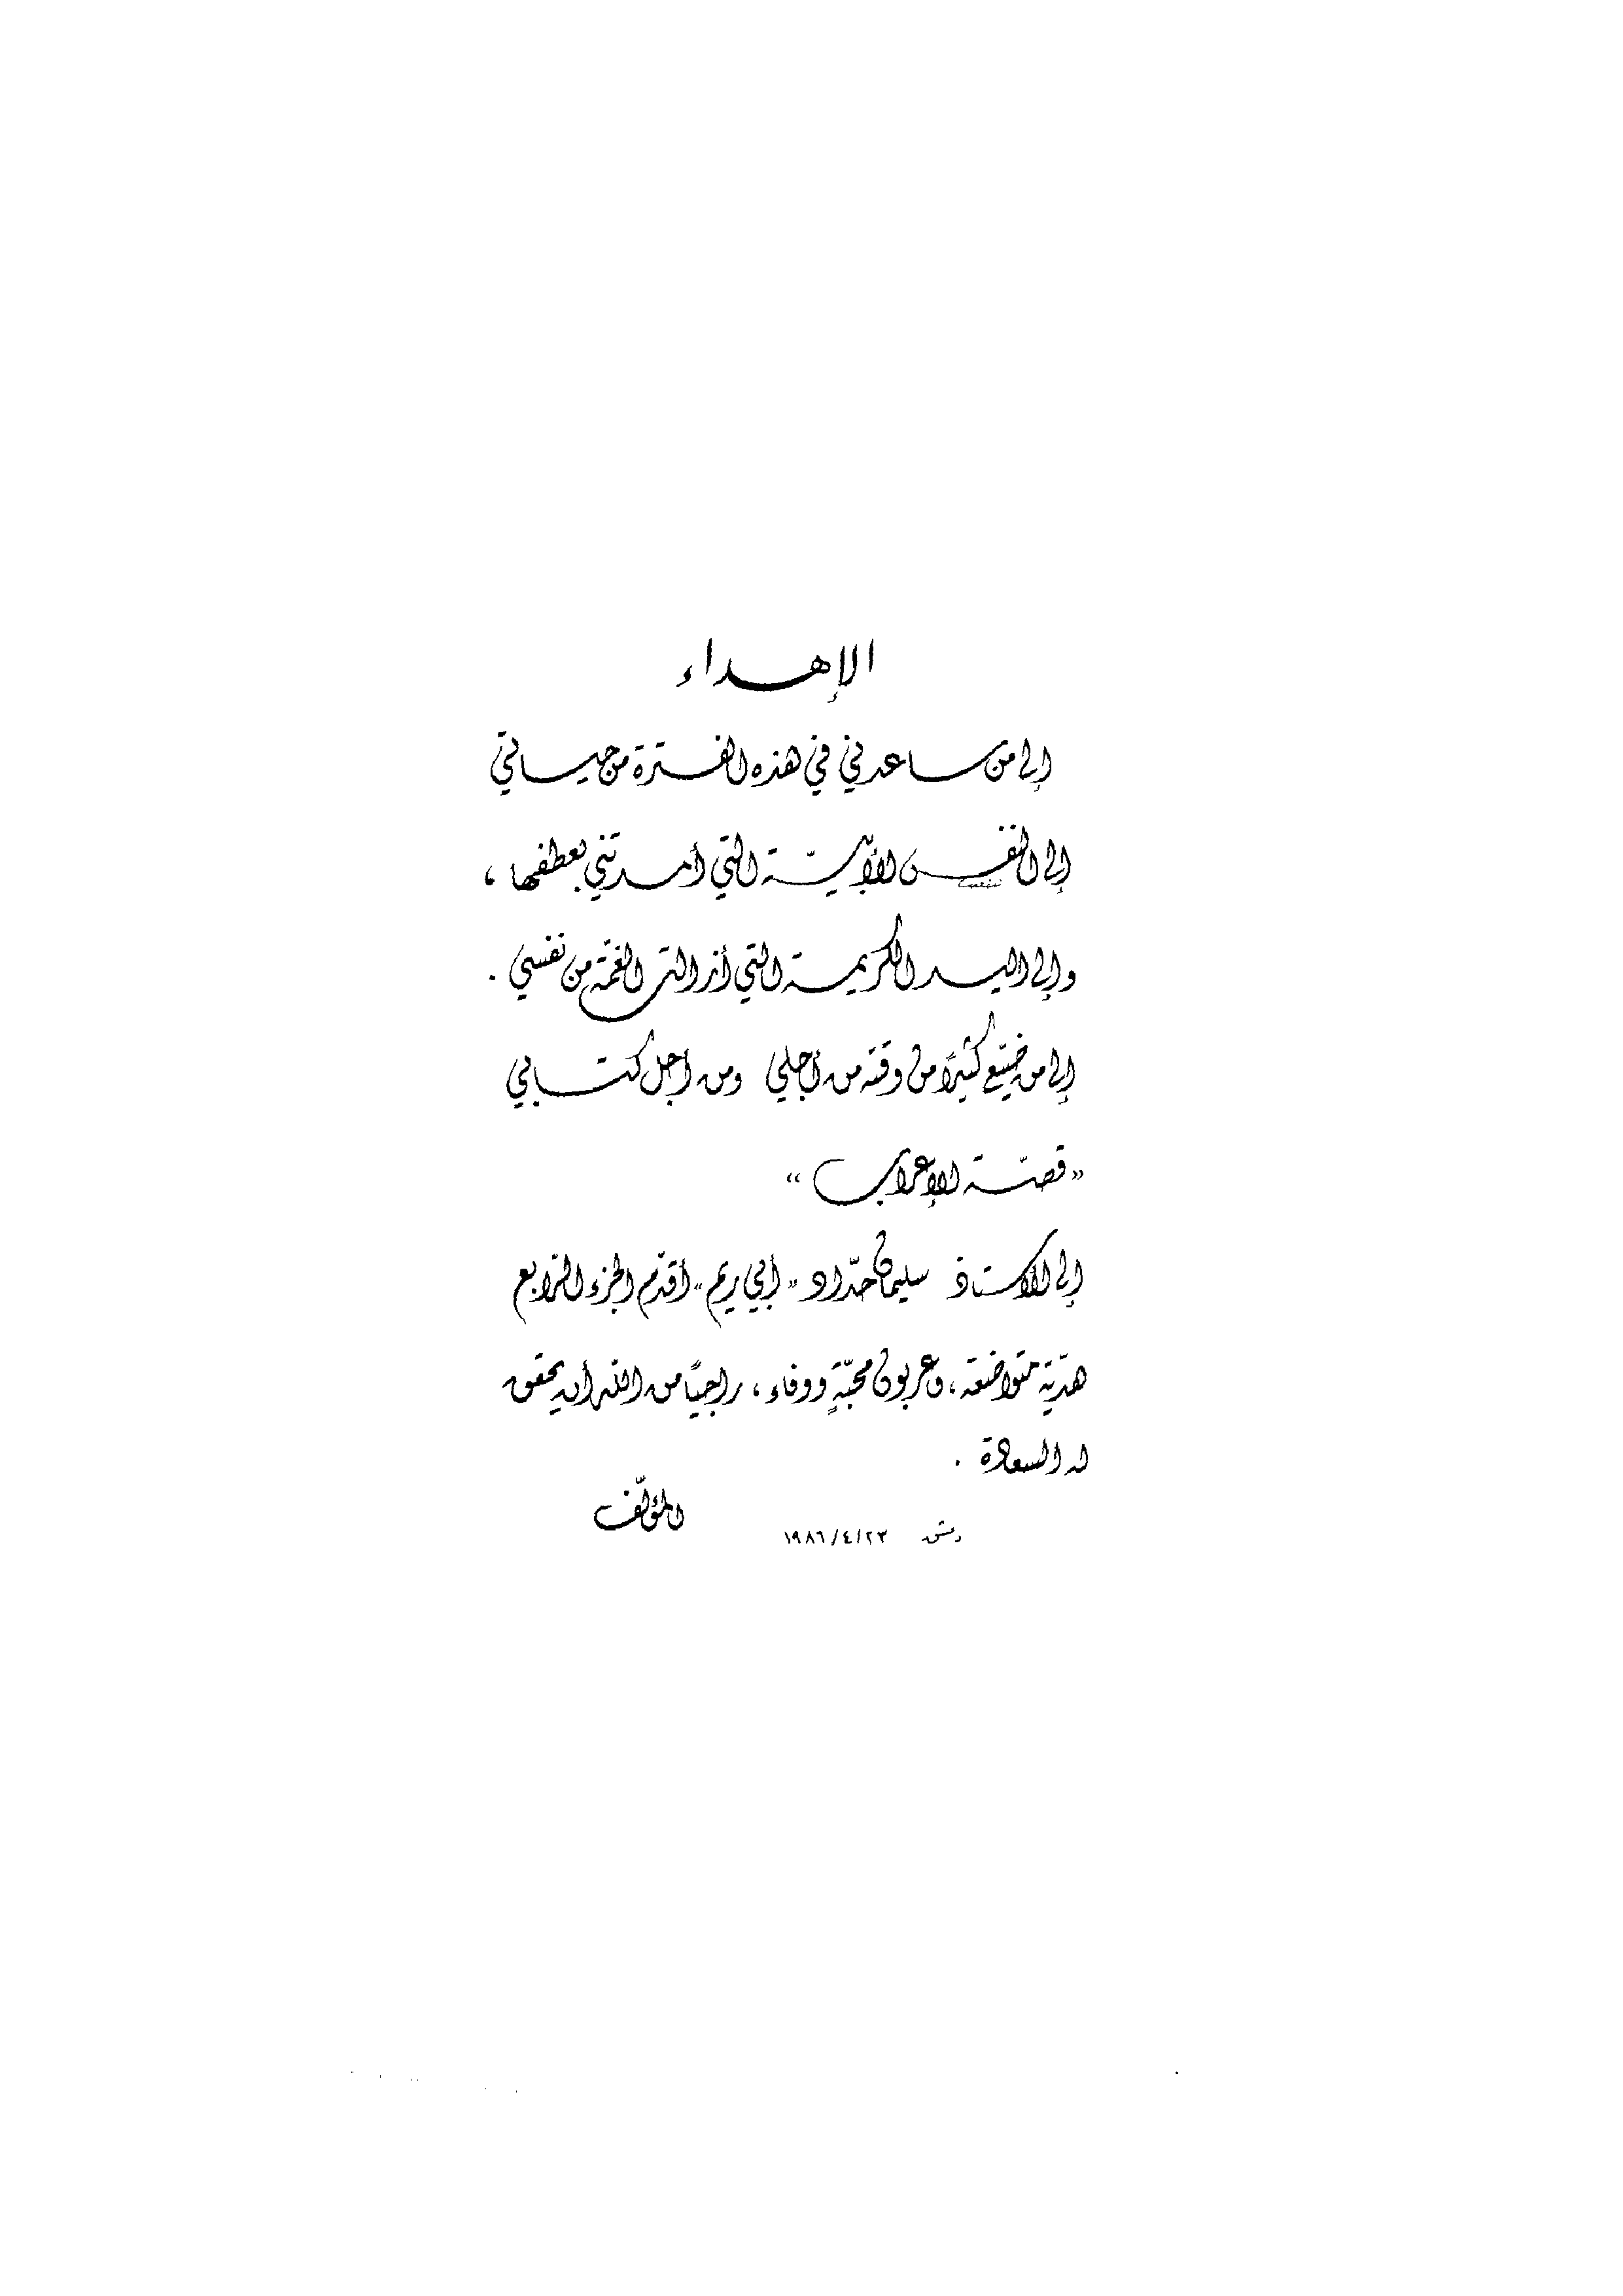 الإهداء
إلى من ساعدني في هذه الفترة من حياتي
إلى النفس الأبيّة التي أمدتني بعطفها ،
وإلى اليد الكريمة التي أزالت الغمّة من نفسي .
إلى من ضيّع كثيرًا من وقته من أجلي ومن أجل كتابي
« قصّة الإعراب »
إلى الأستاذ سليمان حدّاد « أبي ريم » أقدّم الجزء الرّابع
هديّة متواضعة ، وعربون محبّةٍ ووفاء ، راجيًا من الله أن يحقق
له السعادة .
المؤلّف
دمشق ١٩٨٦/٤/٢٣